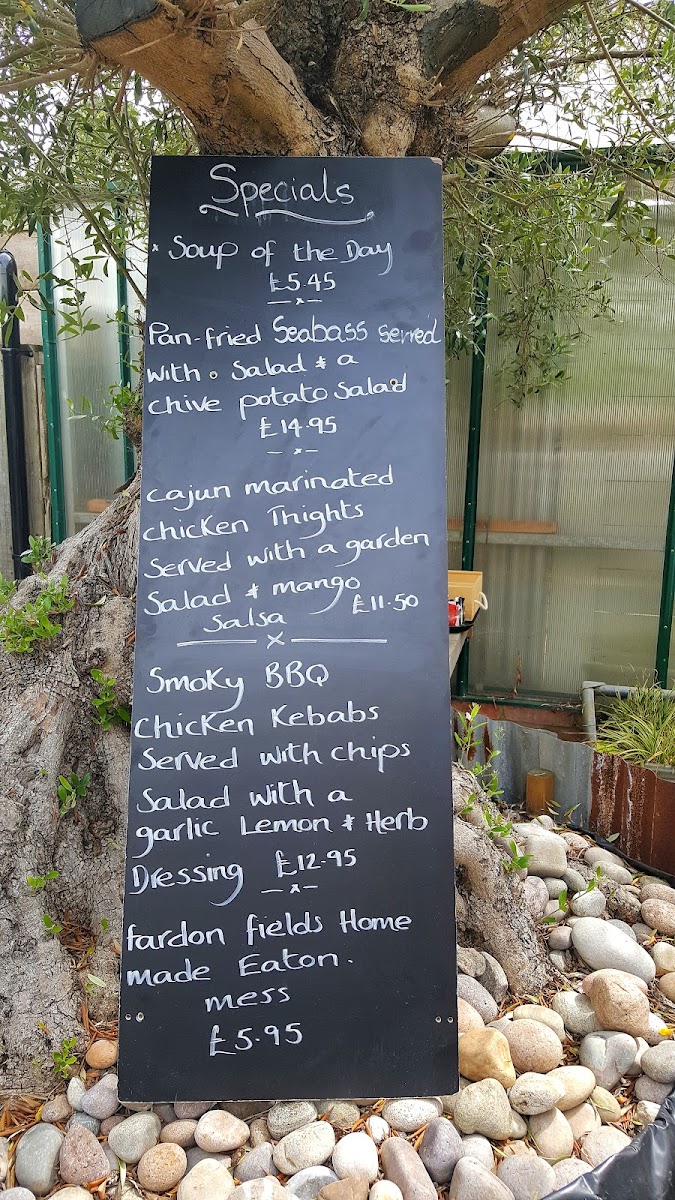 Specials
* Soup of the Day
£5.45
Pan-fried Seabass served
with Salad & a
chive potato Salad
£14.95
cajun marinated
chicken Thights
Served with a garden
Salad & mango
Salsa £11.50
Smoky BBQ
chicken Kebabs
Served with chips
Salad with a
garlic Lemon & Herb
Dressing £12.95
fardon fields Home
made Eaton.
mess
£5.95